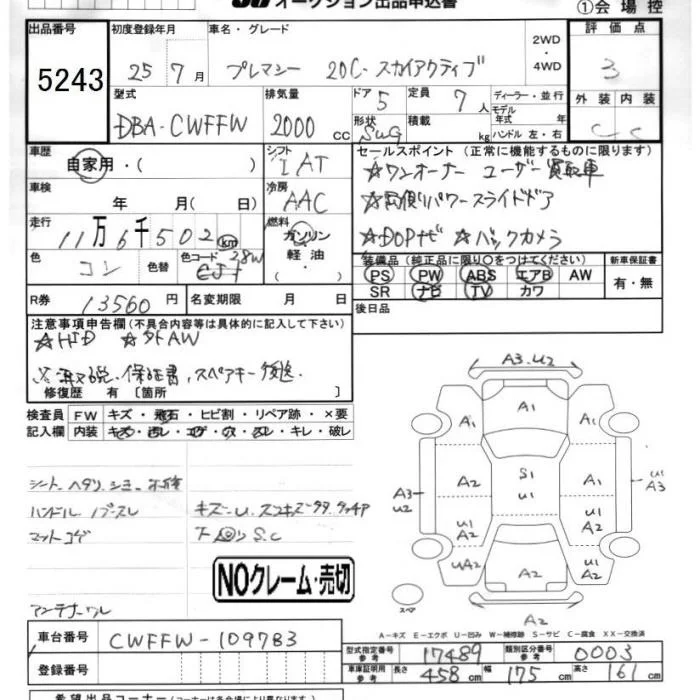 オークション出品申込書
①会場控
出品番号 初度登録年月 車名・グレード 評価点
5243 25年 7月 プレマシー 20C-スカイアクティブ 2WD・4WD 3
型式 排気量 ドア 5 定員 7人 ディーラー・並行 外装 内装
DBA-CWFFW 2000cc 形状 SWG 積載 kg モデル年式 年式 ハンドル 左・右 C C
車歴 自家用・( ) シフト IAT セールスポイント (正常に機能するものに限ります)
☆ワンオーナー ユーザー買取車
車検 年 月( 日) 冷房 AAC ☆両側パワースライドドア
走行 11万6千502km 燃料 ガソリン・軽油・ ☆DOPナビ ☆バックカメラ
色 コン 色替 色コード
装備品 (純正品に限り○をつけてください) 新車保証書
PS PW ABS エアB AW 有・無
SR ナビ TV カワ
R券 13560円 名変期限 月 日 後日品
注意事項申告欄 (不具合内容等は具体的に記入して下さい)
☆HID ☆社外AW
※取説、保証書、スペアキー後送
修復歴 有 〔箇所
検査員 FW キズ・飛石・ヒビ割・リペア跡・×要
記入欄 内装 キズ・汚レ・コゲ・穴・スレ・キレ・破レ
シート ヘタリ シミ
ハンドル
マットコゲ
NOクレーム・売切
A3・U2
A1
A1 A1
A2 S1 U1 A1
A3 U2 U1 A3
U1 A2 U1 A2
UA2 A2 A2
A2
スペア
A-キズ E-エクボ U-凹み W-補修跡 S-サビ C-腐食 XX-交換済
車台番号 CWFFW-109783
登録番号
型式指定番号 参考 17489 類別区分番号 参考 0003
車庫証明用 参考 長さ 458cm 幅 175cm 高さ 161cm
希望出品コーナー